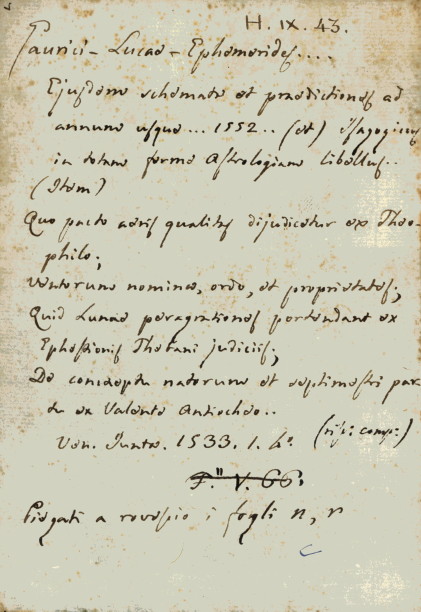 H. IX. 43.
Gaurici - Lucae - Ephemerides....
Ejusdem schemata et praedictiones ad
annum usque... 1552.. (et) Isagogicus
in totam ferme Astrologiam libellus..
(Item)
Quo pacto aeris qualitas dijudicetur ex Theo-
philo;
Ventorum nomina, ordo, et proprietates;
Quid Lunae peragrationes portendant ex
Ephestionis Thebani judiciis;
De conceptu natorum et septimestri par-
tu ex Valente Antiocheo..
Ven. Juntae. 1533. 1. 4°
(rip: comp:)
P." V. 66.
Piegati a rovescio i fogli n, r